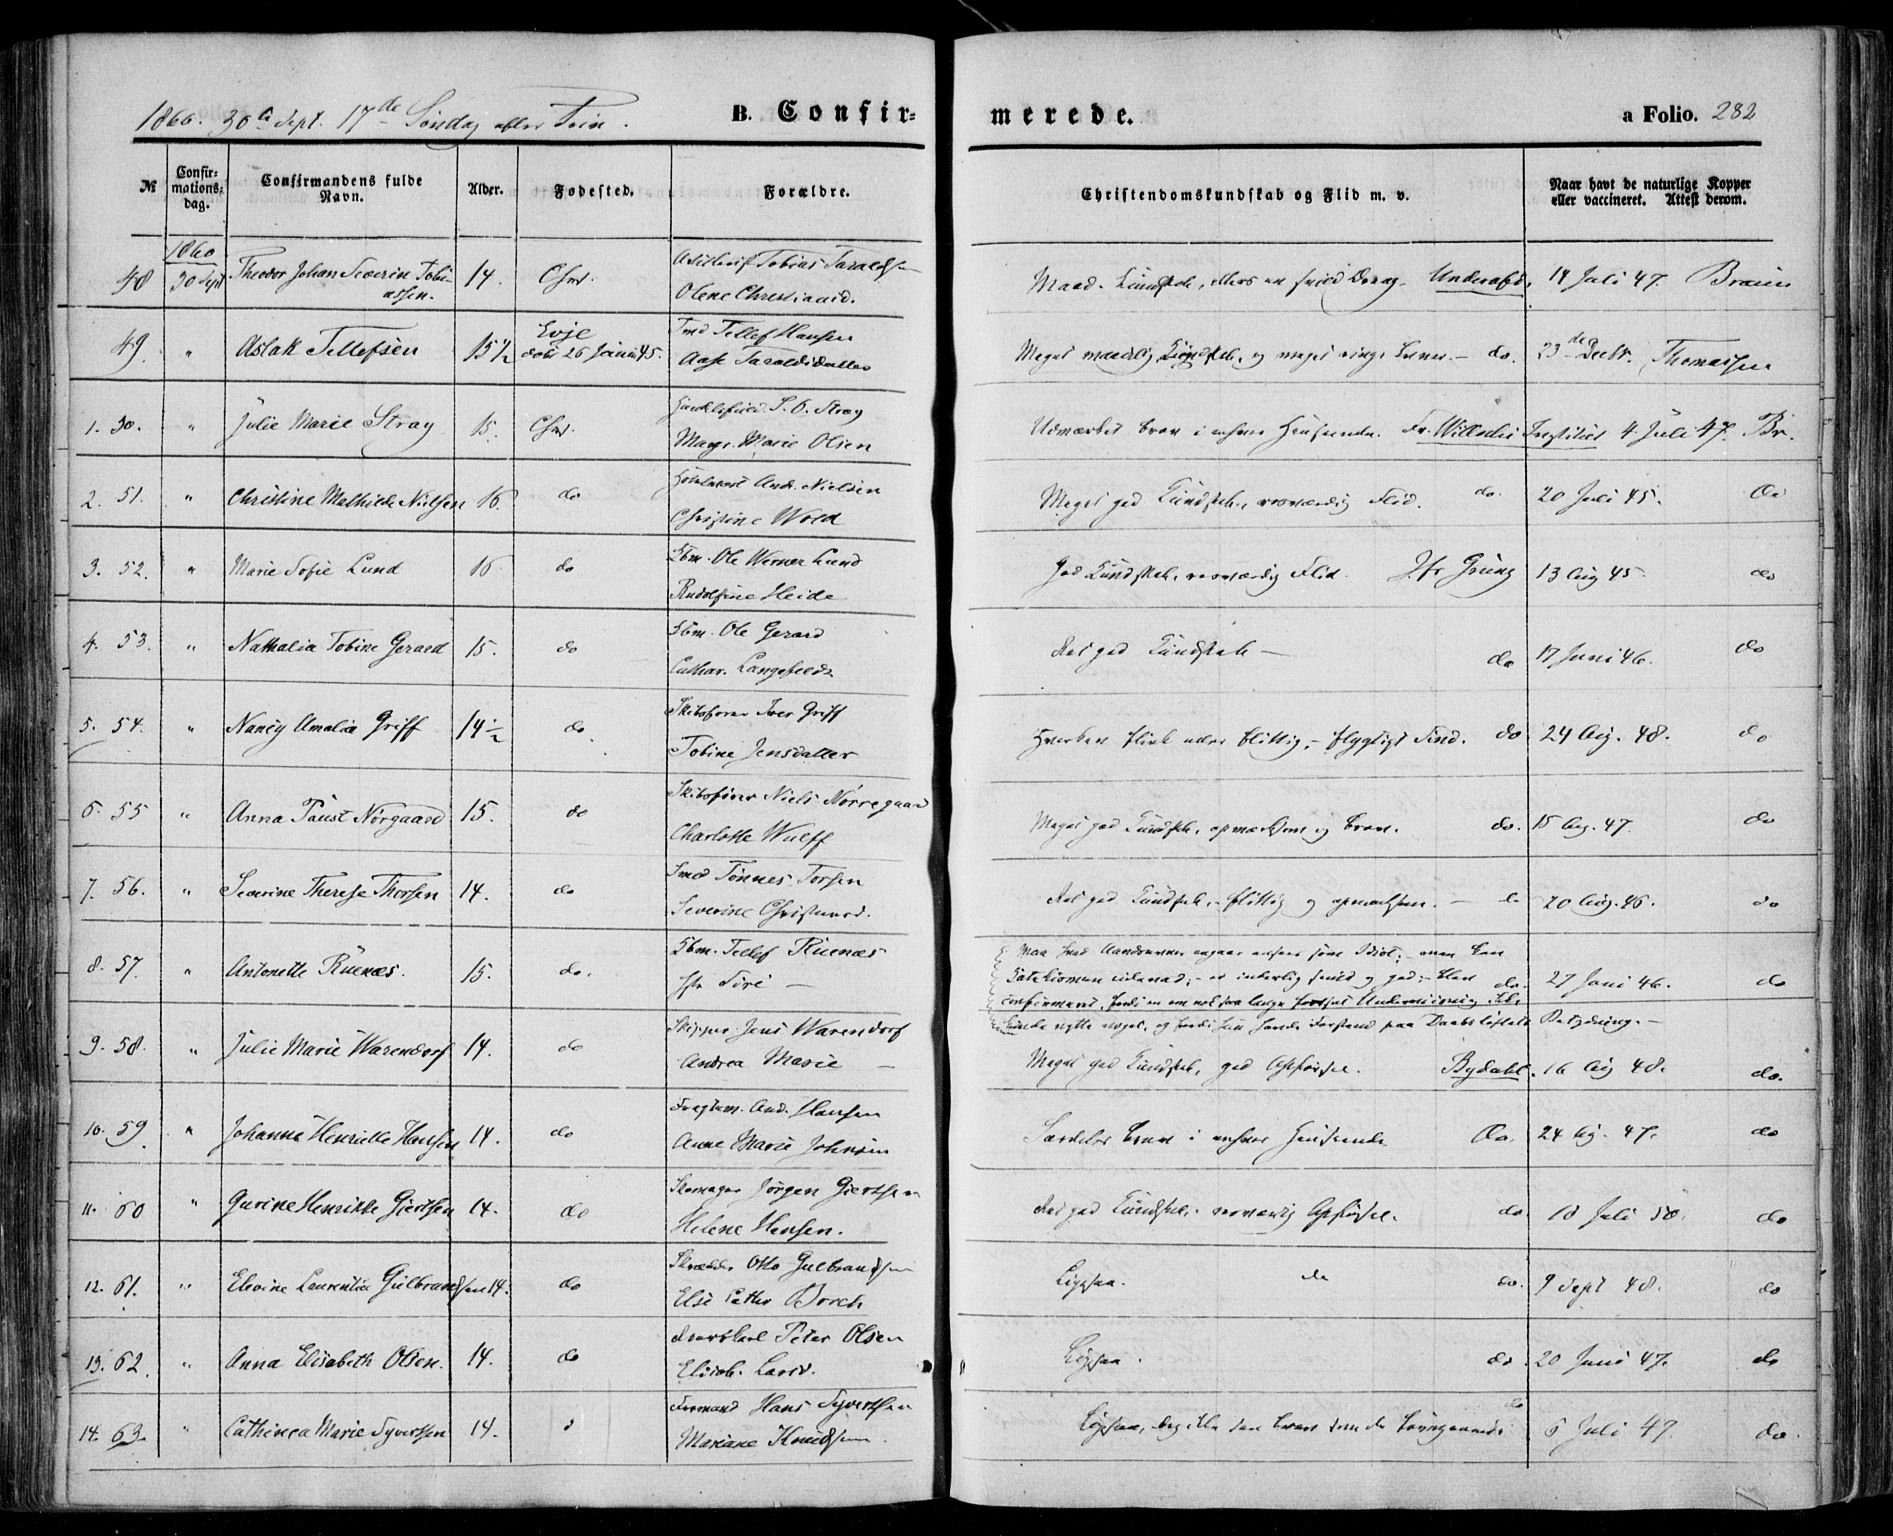 1860. 30te Sept. 17de Søndag efter Trin.
B. Confir-
merede.
a Folio. 282
№
Confir-
mations-
dag.
Confirmandens fulde
Navn.
Alder.
Fødested.
Forældre.
Christendomskundskab og Flid m. v.
Naar havt de naturlige Kopper
eller vaccineret. Attest derom.
1860
48 30 Sept Theodor Johan Severin Tobi-
assen. 14. Chrs. Tobias Taraldsen
Olene Christiansd.
Maad. Kundskab, ellers en Dreng. Underafd. 14 Juli 47. Braun
49. " Aslak Tellefsen 15½ Evje
døbt 26 Januar 45. Smed Tellef Hansen
Aase Taraldsdatter
Meget maadelig Kundskab, og meget ringe Evner. - do. 23de Decbr. Thomassen
1. 50. " Julie Marie Stray 15. Chrs. S. O. Stray
Margr. Marie Olsen
Udmærket brav i enhver Henseende. Fr. Willochs Institut 4 Juli 47. Br.
2. 51. " Christine Mathilde Nielsen 16. do And. Nielsen
Christine Wold
Meget god Kundskab, rosværdig Flid. do. 20 Juli 45. do
3. 52. " Marie Sofie Lund 16 do Sbm. Ole Werner Lund
Rudolfine Heide
God Kundskab, rosværdig Flid. Jfr Grung 13 Aug 45. do
4. 53. " Nathalia Tobine Gerard 15. do Sbm. Ole Gerard
Cathar. Langefeldt
Ret god Kundskab - do 17 Juni 46. do
5. 54. " Nancy Amalia Griff 14½ do. Skibsfører Iver Griff
Tobine Jensdatter
Hverken flink eller flittig, - flygtigt Sind. do 24 Aug. 48. do
6. 55 " Anna Faust Nørgaard 15. do Skibsfører Niels Nørregaard
Charlotte Wulff
Meget god Kundskab, opmærksom og brav. do. 15 Aug. 47. do
7. 56. " Severine Therese Thorsen 14. do Smed Tønnes Torsen
Severine Christensd.
Ret god Kundskab, - flittig og opmærksom. - do 20 Aug. 46. do
8. 57. " Antonette Ruenæs. 15. do. Sbm. Tellef Ruenæs
Siri -
Maa hvad Aandsevner angaar ansees som Idiot; - men kan
Katekismen udenad; - er inderlig from og god; - blev do. 27 Juni 46. do
confirmeret, fordi en om nok saa længe fortsat Underviisning ikke
kunde nytte noget, og fordi hun havde Forstand paa Daabsløftets Betydning. -
9. 58. " Julie Marie Warendorf 14. do Skipper Jens Warendorf
Andrea Marie -
Meget god Kundskab, god Opførsel. Bydahl. 16 Aug 48. do.
10. 59. " Johanne Henriette Hansen 14. do And. Hansen
Anne Marie Johnsen
Særdeles brav i enhver Henseende do. 24 Aug. 47. do
11. 60 " Gurine Henrikke Giertsen 14. do Skomager Jørgen Giertsen
Helene Hansen.
Ret god Kundskab, - rosværdig Opførsel. do. 18 Juli 50. do
12. 61. " Elevine Laurentia Gulbrandsen 14. do Skrædder Otto Gulbrandsen
Else Cathr Borch
Ligesaa. do do. 9 Sept 48. do
13. 62. " Anna Elisabeth Olsen. 14. do Peter Olsen
Elisab. Larsd.
Ligesaa. do 20 Juni 47. do
14. 63. " Cathinca Marie Syvertsen 14. Formand Hans Syvertsen
Mariane Knudsen.
Ligesaa, dog ikke saa brav som de foregaaende do 6 Juli 47. do.